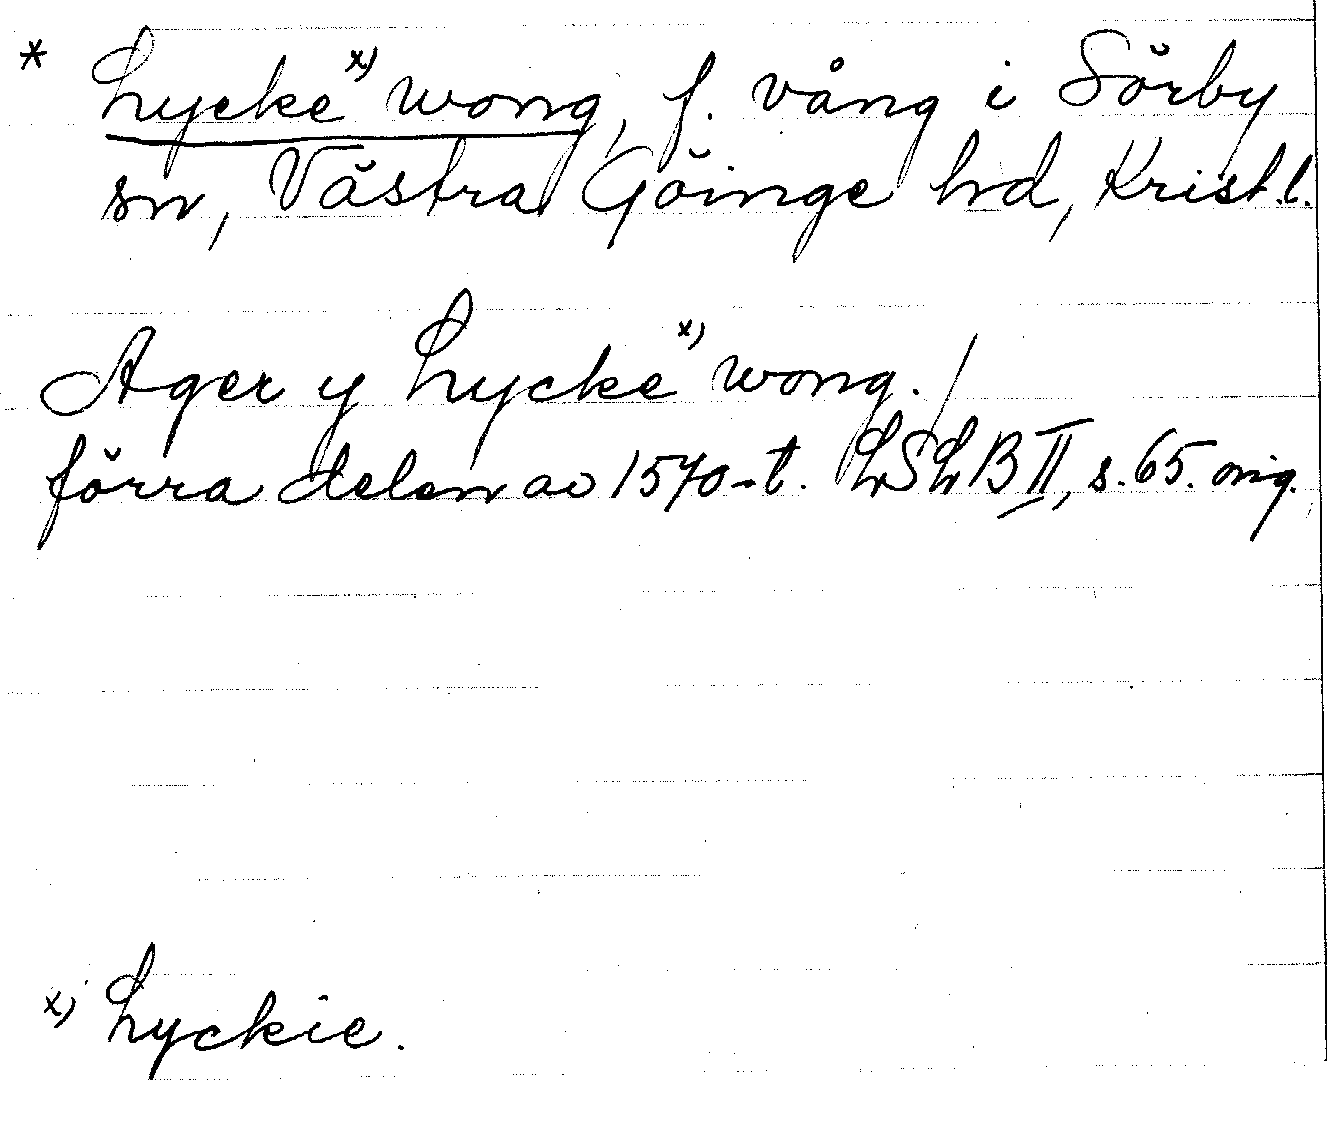 * Lycke x) wong, f. vång i Sörby
sn, Västra Göinge hd, Krist.l.
Ager y Lycke x) wong. /
förra delen av 1570-t. LSLB II, s. 65. orig.
x) Lyckie.